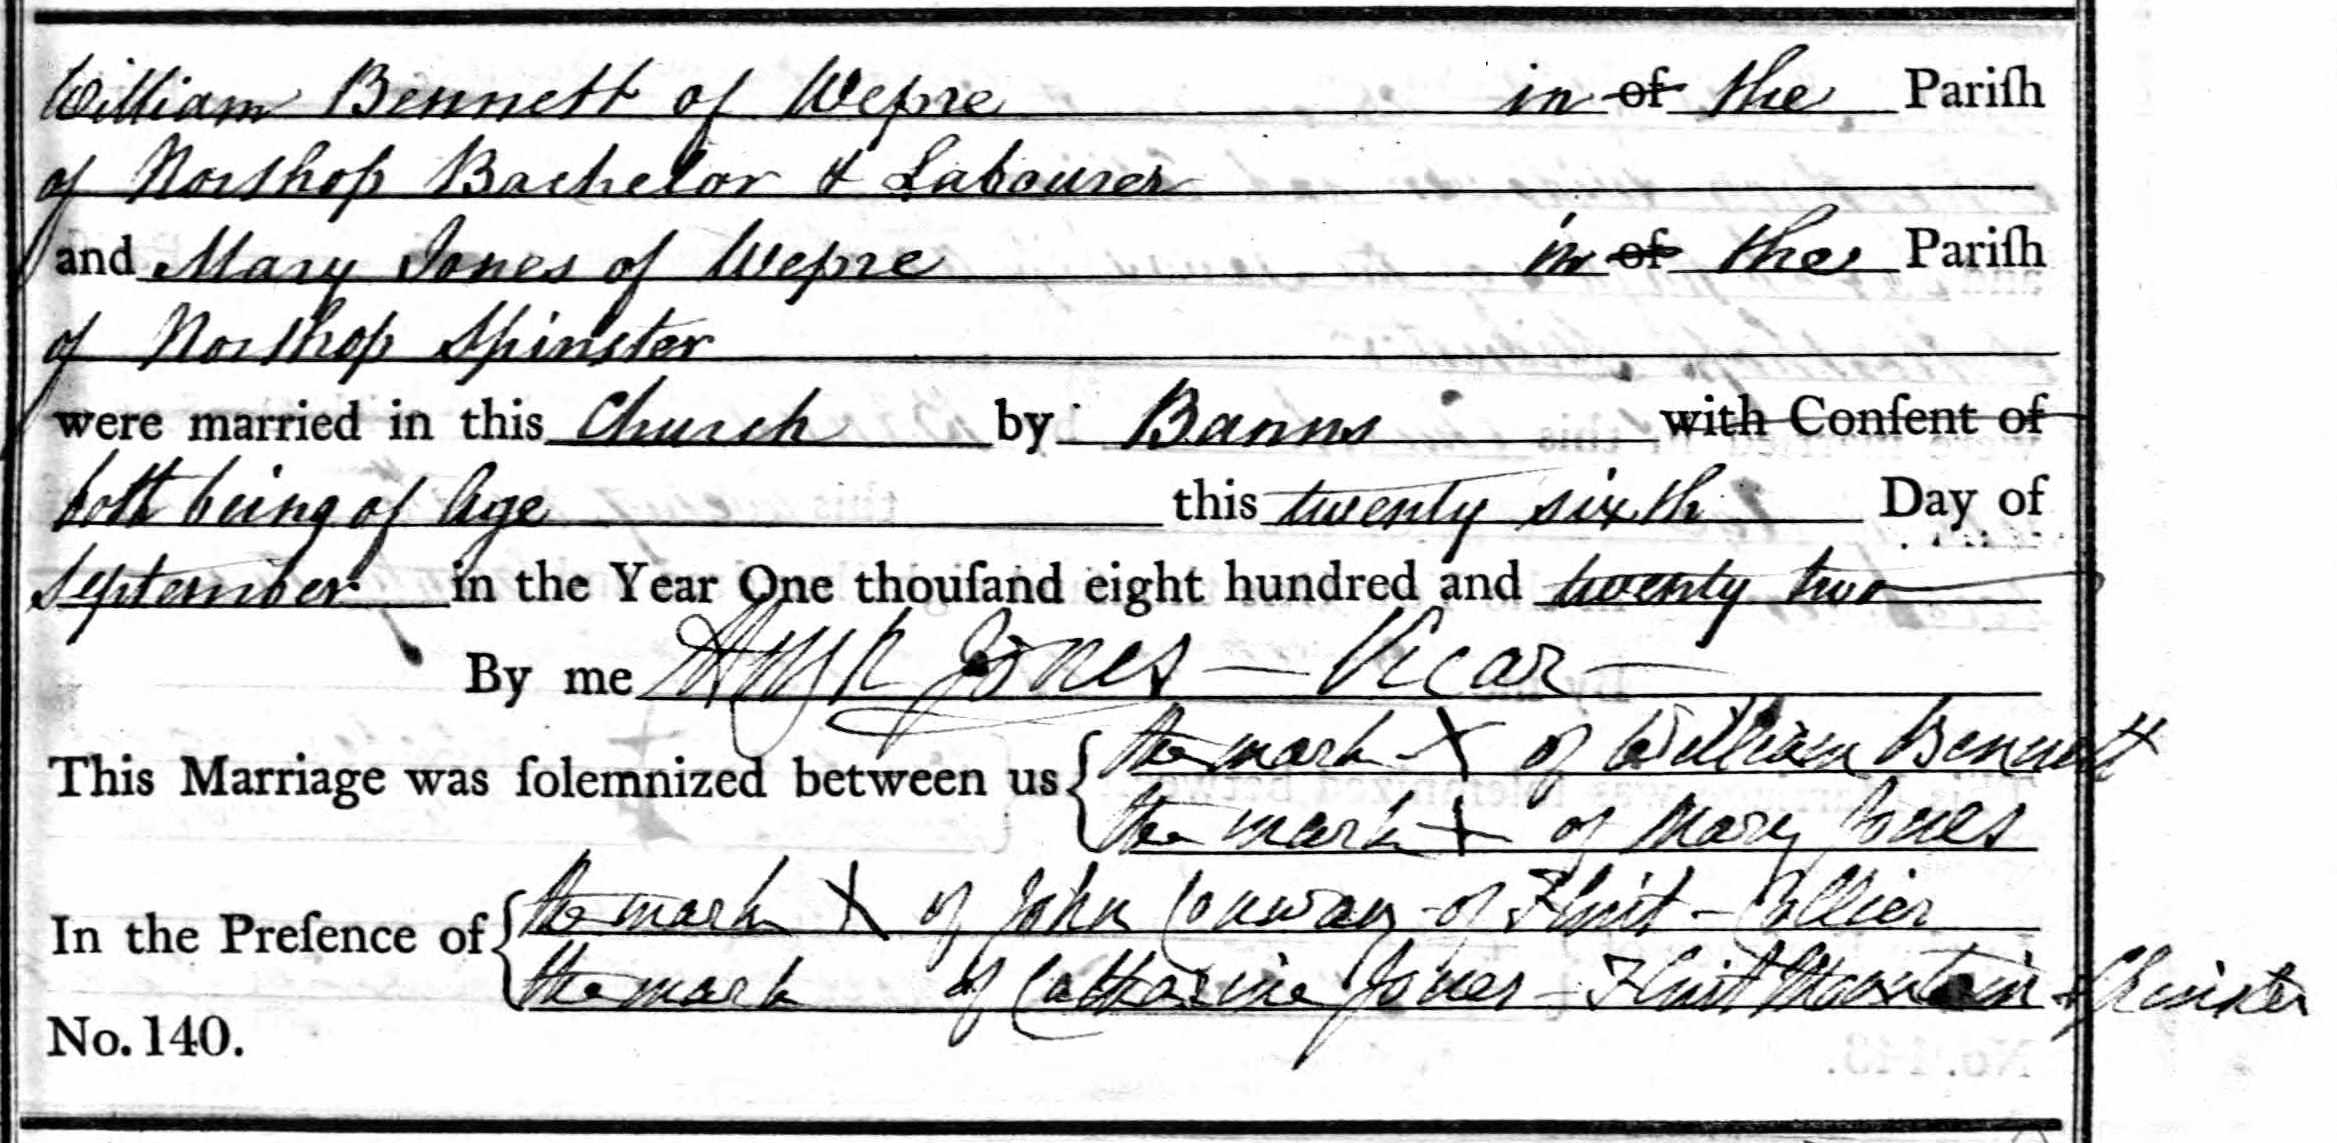 William Bennett of Wepre in of the Pariſh
of Northop Bachelor & Labourer
and Mary Jones of Wepre in of the Pariſh
of Northop Spinster
were married in this Church by Banns with Conſent of
both being of Age this twenty sixth Day of
September in the Year One thouſand eight hundred and twenty two
By me Hugh Jones — Vicar —
This Marriage was ſolemnized between us { the mark X of William Bennett
the mark X of Mary Jones
In the Preſence of { the mark X of John Conway - of Flint - Collier
the mark of Catharine Jones - Flint Mountain Spinster
No. 140.